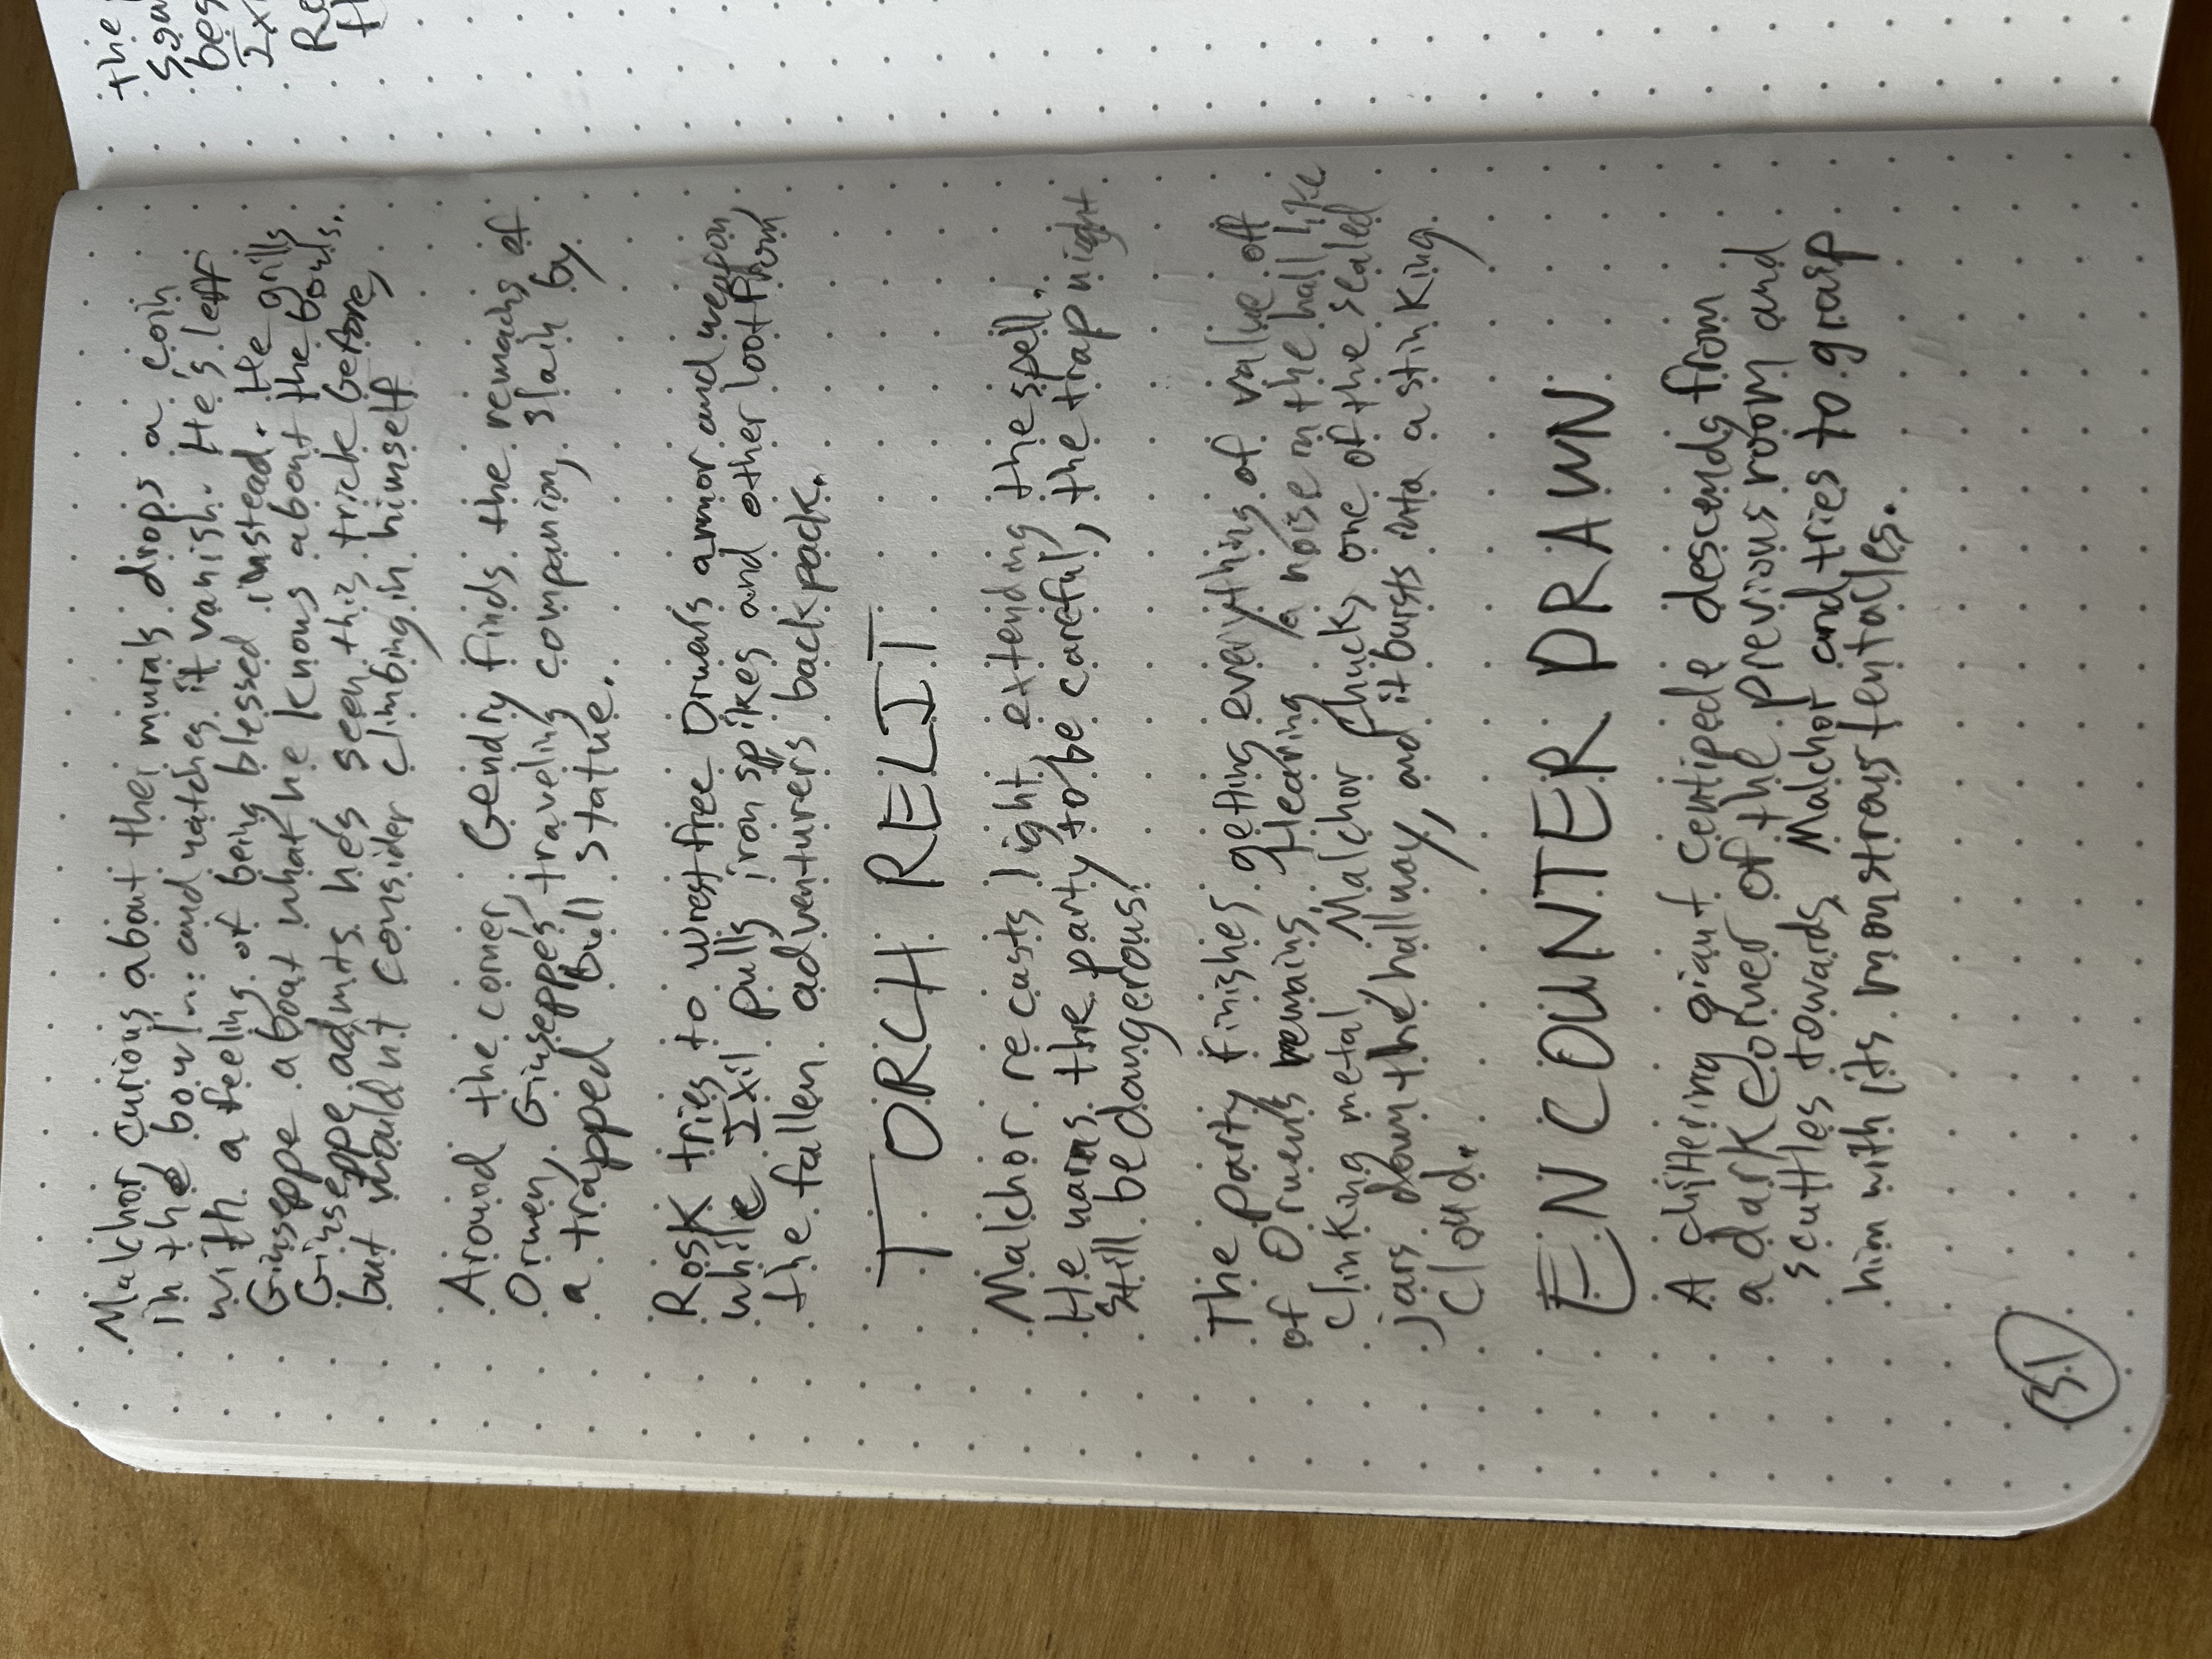 Malchor, curious about their murals drops a coin
in the bowl n: and watches it vanish. He's left
with a feeling of being blessed instead. He grills
Ginseppe about what he knows about the bowls.
Ginseppe admits he's seen this trick before,
but wouldn't consider climbing in himself
Around the corner, Gendry finds the remains of
Ormen, Giuseppe's traveling companion, slain by
a trapped bull statue.
Rosk tries to wrest free Ormen's armor and weapon
while Ixil pulls iron spikes and other loot from
the fallen adventurers backpack.
TORCH RELIT
Malchor recasts light, extending the spell.
He warns the party to be careful, the trap might
still be dangerous!
The party finishes getting everything of value off
of Ormen's remains, Hearing a noise in the hall like
clinking metal Malchor chucks one of the sealed
jars down the hallway, and it bursts into a stinking
cloud.
ENCOUNTER DRAWN
A chittering giant centipede descends from
a dark corner of the previous room and
scuttles towards Malchor and tries to grasp
him with its monstrous tentacles.
31
the
bes
Ixi
Re